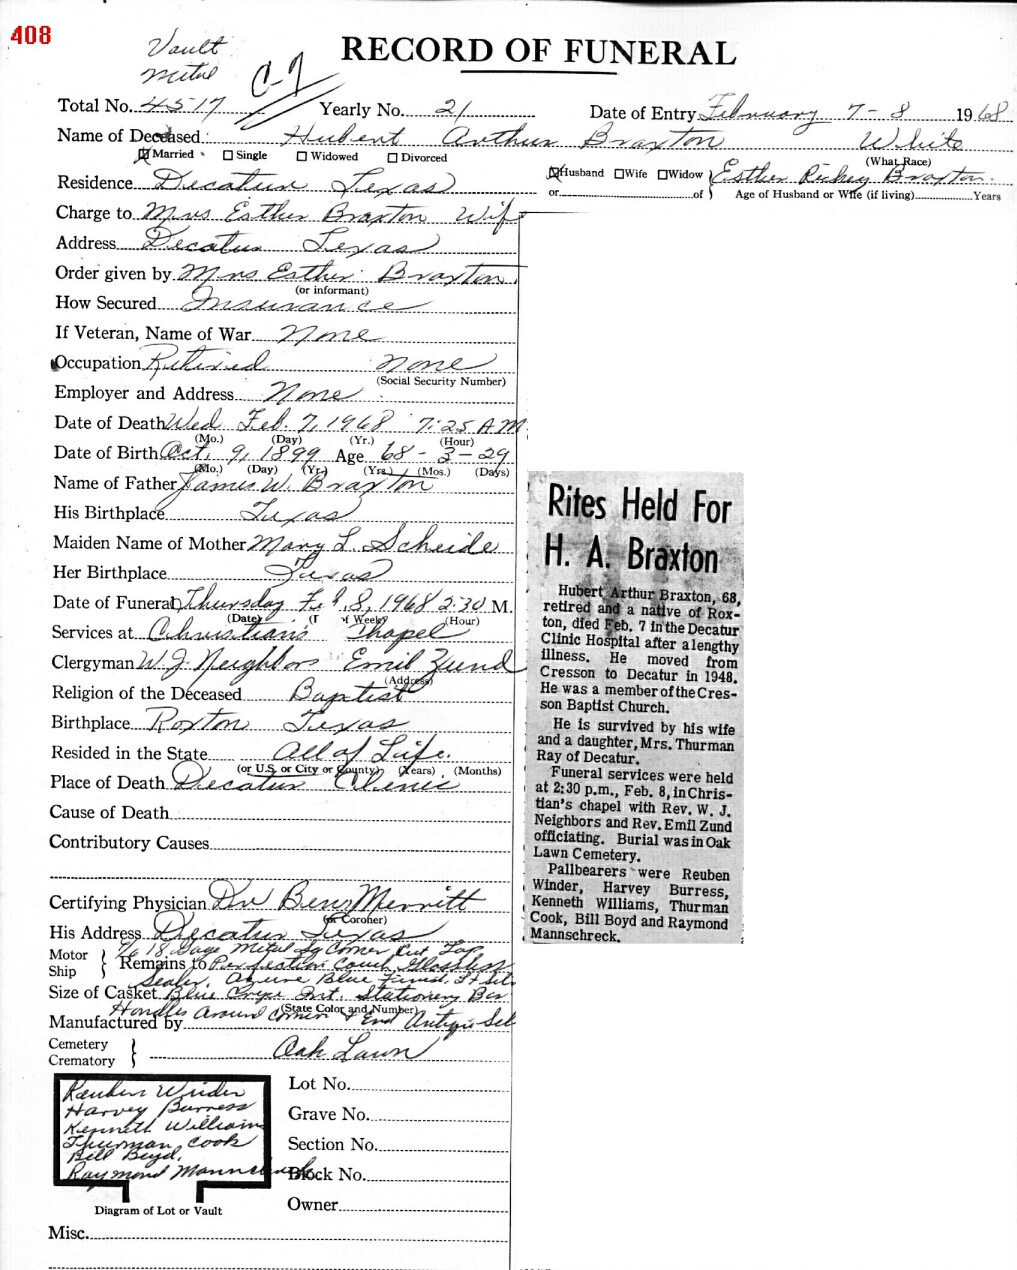 408
Vault
Metal
C-7
RECORD OF FUNERAL
Total No. 4517 Yearly No. 21 Date of Entry February 7-8 1968
Name of Deceased: Hubert Arthur Braxton White
Married Single Widowed Divorced (What Race)
Residence Decatur Texas Husband Wife Widow Esther Richey Braxton
or of Age of Husband or Wife (if living) Years
Charge to Mrs Esther Braxton Wif
Address Decatur Texas
Order given by Mrs Esther Braxton
(or informant)
How Secured Insurance
If Veteran, Name of War None
Occupation Retired None
(Social Security Number)
Employer and Address None
Date of Death Wed Feb. 7, 1968 7:25 A M
(Mo.) (Day) (Yr.) (Hour)
Date of Birth Oct, 9, 1899 Age 68-3-29
(Mo.) (Day) (Yr.) (Yrs.) (Mos.) (Days)
Name of Father James W. Braxton
His Birthplace Texas
Maiden Name of Mother Mary L. Scheide
Her Birthplace Texas
Date of Funeral Thursday Feb. 8, 1968 2:30 M.
(Date) of Week) (Hour)
Services at Christians Chapel
Clergyman W. J. Neighbors Emil Zund
(Address)
Religion of the Deceased Baptist
Birthplace Roxton Texas
Resided in the State All of Life.
(or U.S. or City or County) (Years) (Months)
Place of Death Decatur Clinic
Cause of Death
Contributory Causes
Certifying Physician Dr Benj Merritt
(or Coroner)
His Address Decatur Texas
18 Gage Metal Sq Corner Cut Top
Motor Ship Remains to Perfection Couch Glassless
Sealer, Azure Blue Finish,
Size of Casket Blue Crepe Int. Stationery Bar
(State Color and Number)
Handles Around Corner + End Antique
Manufactured by
Cemetery
Crematory Oak Lawn
Reuben Winder
Harvey Burress
Kenneth Williams
Thurman Cook
Bill Boyd.
Raymond Mannschreck
Diagram of Lot or Vault
Lot No.
Grave No.
Section No.
Block No.
Owner
Misc.
Rites Held For
H. A. Braxton
Hubert Arthur Braxton, 68,
retired and a native of Rox-
ton, died Feb. 7 in the Decatur
Clinic Hospital after a lengthy
illness. He moved from
Cresson to Decatur in 1948.
He was a member of the Cres-
son Baptist Church.
He is survived by his wife
and a daughter, Mrs. Thurman
Ray of Decatur.
Funeral services were held
at 2:30 p.m., Feb. 8, in Chris-
tian's chapel with Rev. W. J.
Neighbors and Rev. Emil Zund
officiating. Burial was in Oak
Lawn Cemetery.
Pallbearers were Reuben
Winder, Harvey Burress,
Kenneth Williams, Thurman
Cook, Bill Boyd and Raymond
Mannschreck.